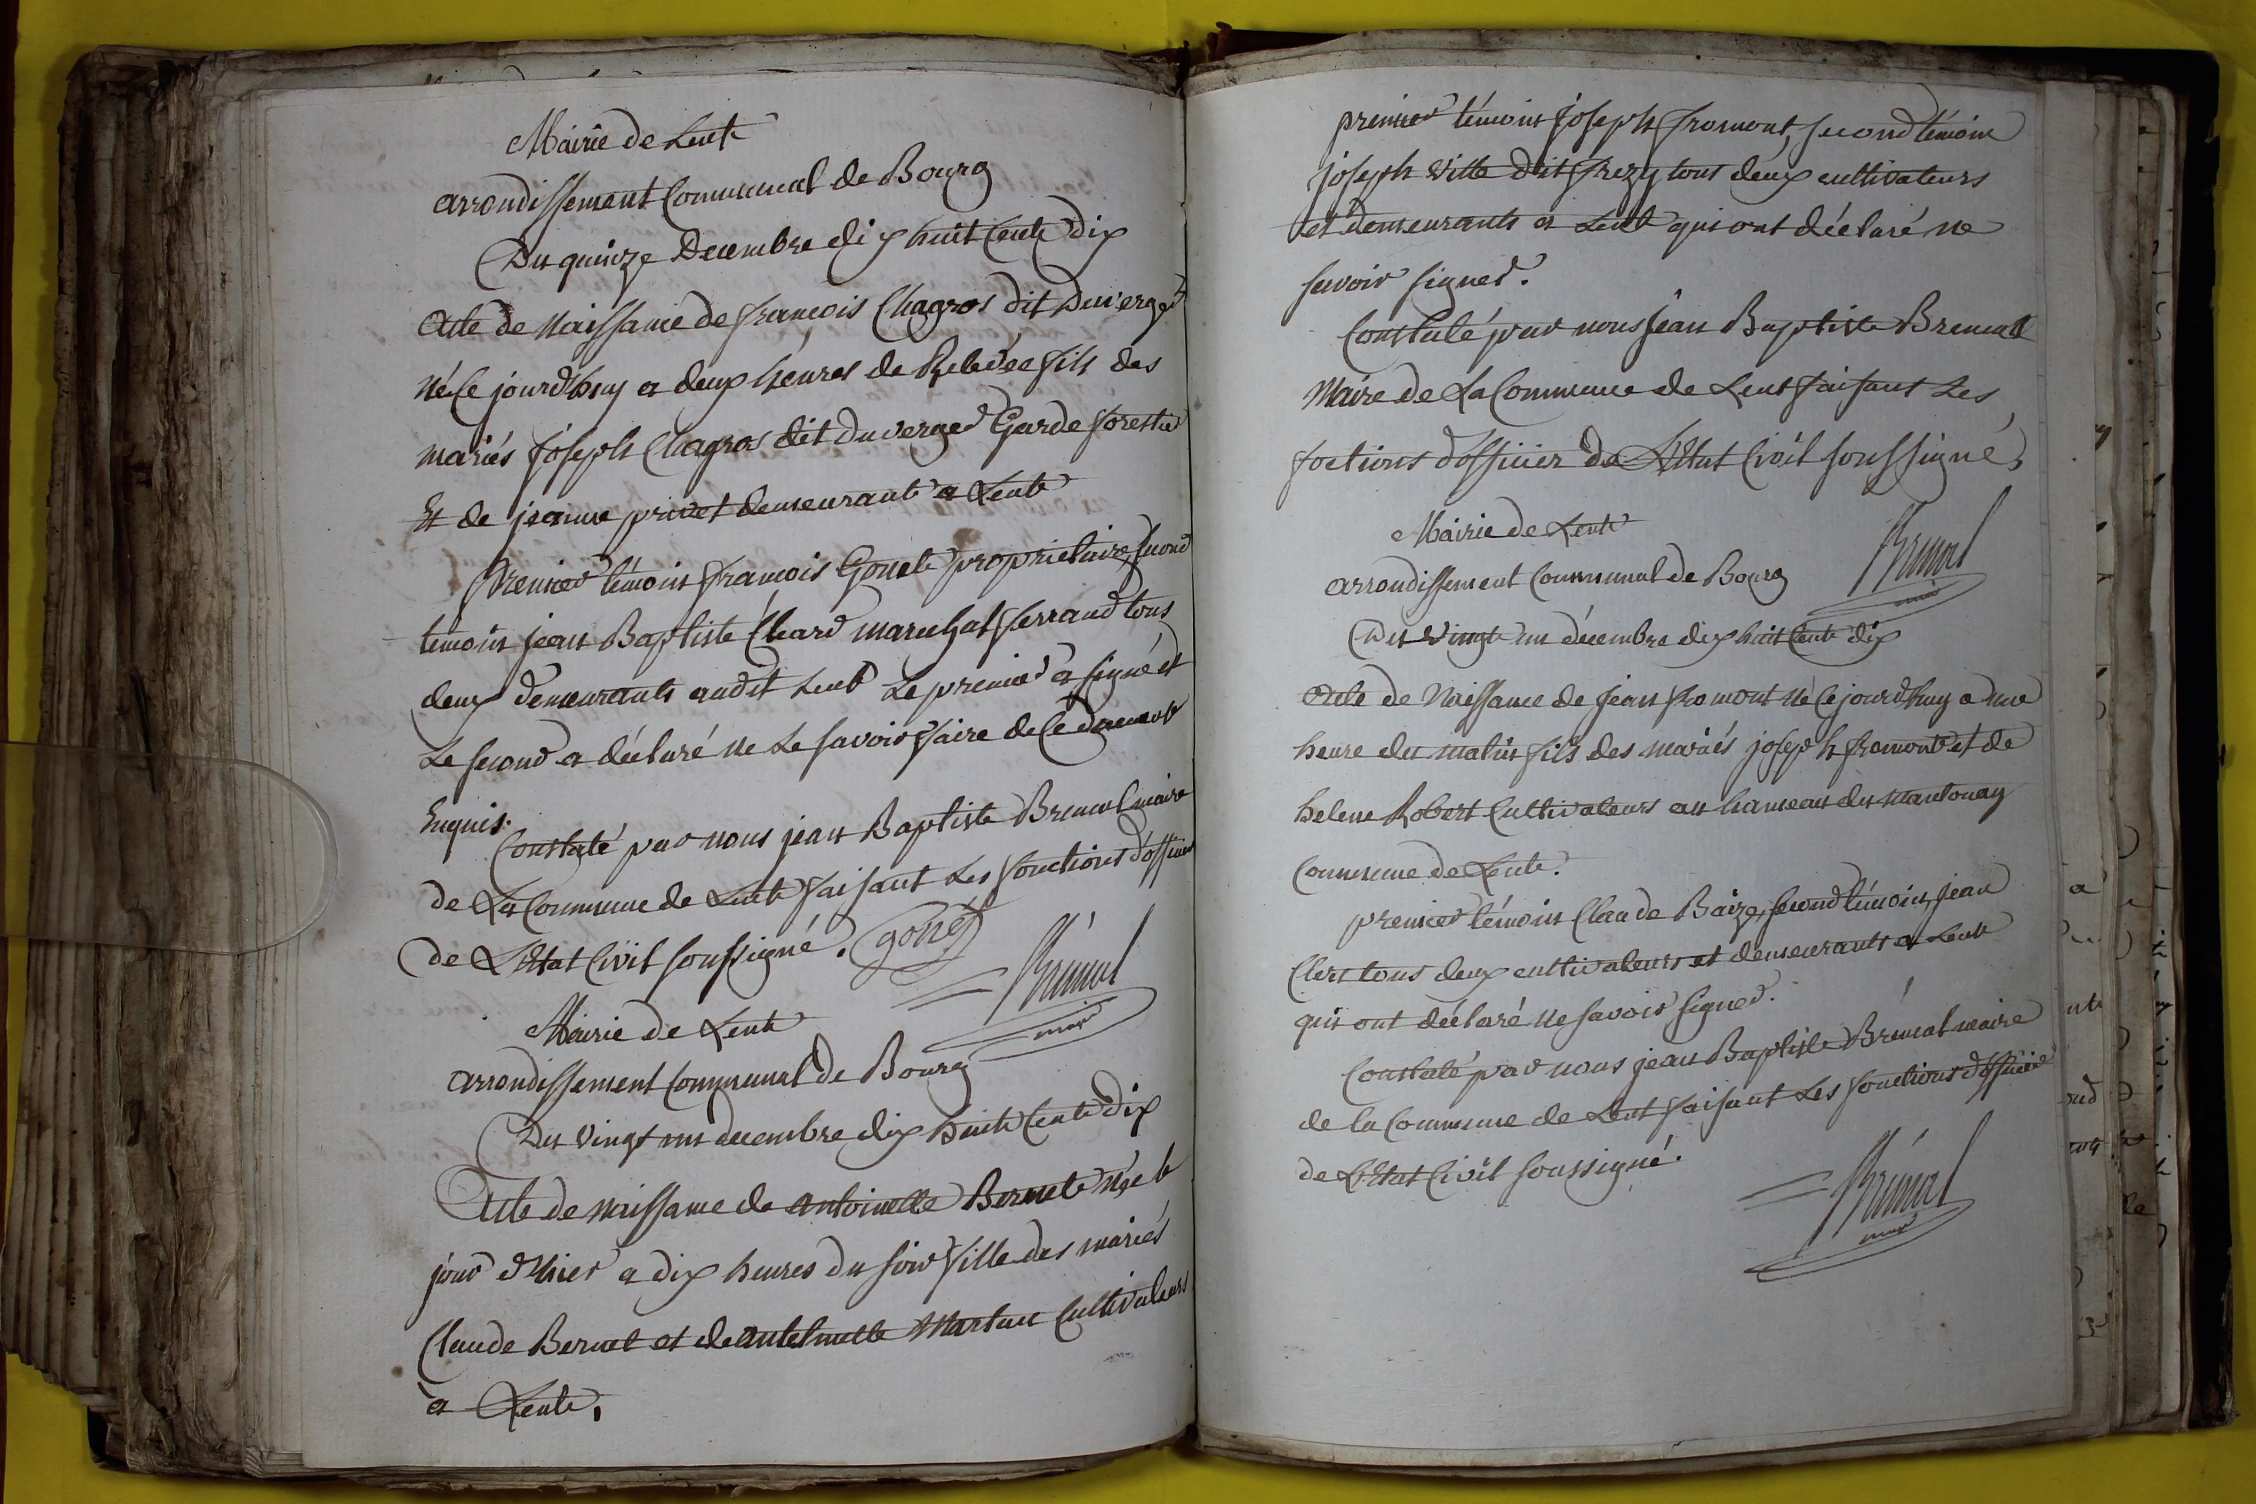 Mairie de Lent
arrondissement Communal de Bourg
Du quinze Decembre dix huit Cent dix
Acte de Naissance de françois Chagros dit Duverger
né Ce jourd'huy a deux heures de Relevée fils des
mariés joseph Chagros dit Duverger Garde forestier
Et de jeanne privet demeurants a Lent
Premier témoin françois Gonet proprietaire, second
témoin jean Baptiste Cléard marechal ferrand tous
deux demeurants audit Lent Le premier a signé et
Le second a déclaré ne Le savoir faire de Ce dument
Enquis.
Constaté par nous jean Baptiste Bremal maire
de La Commune de Lent faisant Les fonctions d'officier
de L'Etat Civil soussigné.
gonet
Brémal
maire
Mairie de Lent
arrondissement Communal de Bourg
Du vingt un decembre dix huit Cent dix
Acte de naissance de antoinette Bernet née le
jour d'hier a dix heures du soir fille des mariés
Claude Bernet et de antelmette Cultivateurs
a Lent,
premier témoin joseph fromont, second témoin
joseph Ville dit frezy tous deux cultivateurs
et demeurants a Lent qui ont déclaré ne
savoir signer.
Constaté par nous jean Baptiste Bremal
Maire de La Commune de Lent faisant Les
foctions d'officier de L'Etat Civil soussigné,
Brémal
maire
Mairie de Lent
arrondissement Communal de Bourg
Du vingt un décembre dix huit Cent dix
Acte de Naissance de jean fromont né Ce jourd'huy a une
heure du matin fils des mariés joseph fromont et de
helene Robert Cultivateurs au hameau du Mantonay
Commune de Lent.
premier témoin Claude Baize, second témoin, jean
Clert tous deux cultivateurs et demeurants a Lent
qui ont déclaré ne savoir signer.
Constaté par nous jean Baptiste Brémal maire
de la Commune de Lent faisant Les fonctions d'officier
de L'Etat Civil soussigné.
Brémal
maire